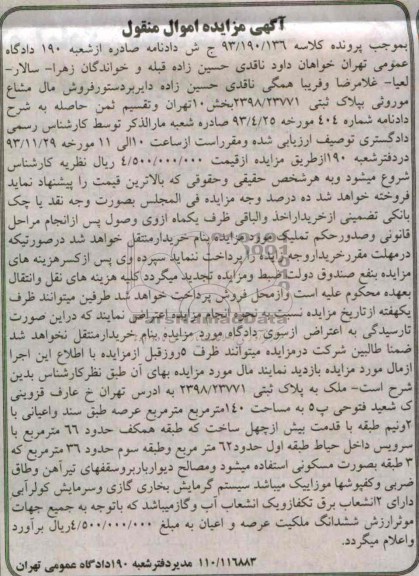 آگهی مزایده اموال منقول
بموجب پرونده کلاسه ۹۳/۱۹۰/۱۳۶ ج ش دادنامه صادره ازشعبه ۱۹۰ دادگاه
عمومی تهران خواهان داود ناقدی حسین زاده قبله و خواندگان زهرا- سالار-
لعیا- غلامرضا وفریبا همگی ناقدی حسین زاده دایربردستورفروش مال مشاع
موروثی بپلاک ثبتی ۲۳۹۸/۲۳۷۷۱بخش۱۰تهران وتقسیم ثمن حاصله به شرح
دادنامه شماره ۴۰۴ مورخه ۹۳/۴/۲۵ صادره شعبه مارالذکر توسط کارشناس رسمی
دادگستری توصیف ارزیابی شده ومقرراست ازساعت ۱۰الی ۱۱ مورخه ۹۳/۱۱/۲۹
دردفترشعبه ۱۹۰ازطریق مزایده ازقیمت ۴/۵۰۰/۰۰۰/۰۰۰ ریال نظریه کارشناس
شروع میشود وبه هرشخص حقیقی وحقوقی که بالاترین قیمت را پیشنهاد نماید
فروخته خواهد شد ده درصد وجه مزایده فی المجلس بصورت وجه نقد یا چک
بانکی تضمینی ازخریداراخذ والباقی ظرف یکماه ازوی وصول پس ازانجام مراحل
قانونی وصدورحکم تملیک مورد مزایده بنام خریدارمنتقل خواهد شد درصورتیکه
درمهلت مقررخریداروجه مزایده را پرداخت ننماید سپرده وی پس ازکسرهزینه های
مزایده بنفع صندوق دولت ضبط ومزایده تجدید میگردد کلیه هزینه های نقل وانتقال
بعهده محکوم علیه است وازمحل فروش پرداخت خواهد شد طرفین میتوانند ظرف
یکهفته ازتاریخ مزایده نسبت به نحوه انجام مزایده اعتراض نمایند که دراین صورت
تارسیدگی به اعتراض ازسوی دادگاه مورد مزایده بنام خریدارمنتقل نخواهد شد
ضمنا طالبین شرکت درمزایده میتوانند ظرف ۵روزقبل ازمزایده با اطلاع این اجرا
ازمال مورد مزایده بازدید نمایند مال مورد مزایده بهای آن طبق نظرکارشناس بدین
شرح است- ملک به پلاک ثبتی ۲۳۹۸/۲۳۷۷۱ به ادرس تهران خ عارف قزوینی
ک شعید فتوحی پ۵ به مساحت ۱۴۰مترمربع مترمربع عرصه طبق سند واعیانی با
۲ونیم طبقه با قدمت بیش ازچهل ساخت که طبقه همکف حدود ۶۶ مترمربع با
سرویس داخل حیاط طبقه اول حدود۶۲ متر مربع وطبقه سوم حدود ۳۶ مترمربع که
۳ طبقه بصورت مسکونی استفاده میشود ومصالح دیوارباربروسقفهای تیرآهن وطاق
ضربی وکفپوشها موزاییک میباشد سیستم گرمایش بخاری گازی وسرمایش کولرآبی
دارای ۲انشعاب برق تکفازویک انشعاب آب وگازمیباشد که باتوجه به جمیع جهات
موثرارزش ششدانگ ملکیت عرصه و اعیان به مبلغ ۴/۵۰۰/۰۰۰/۰۰۰ریال برآورد
واعلام میگردد.
۱۱۰/۱۱۶۸۸۳ مدیردفترشعبه ۱۹۰دادگاه عمومی تهران